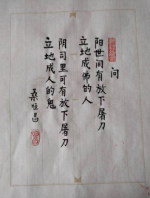 问
阳世间有放下屠刀
立地成佛的人
阴司里可有放下屠刀
立地成人的鬼
桑恒昌